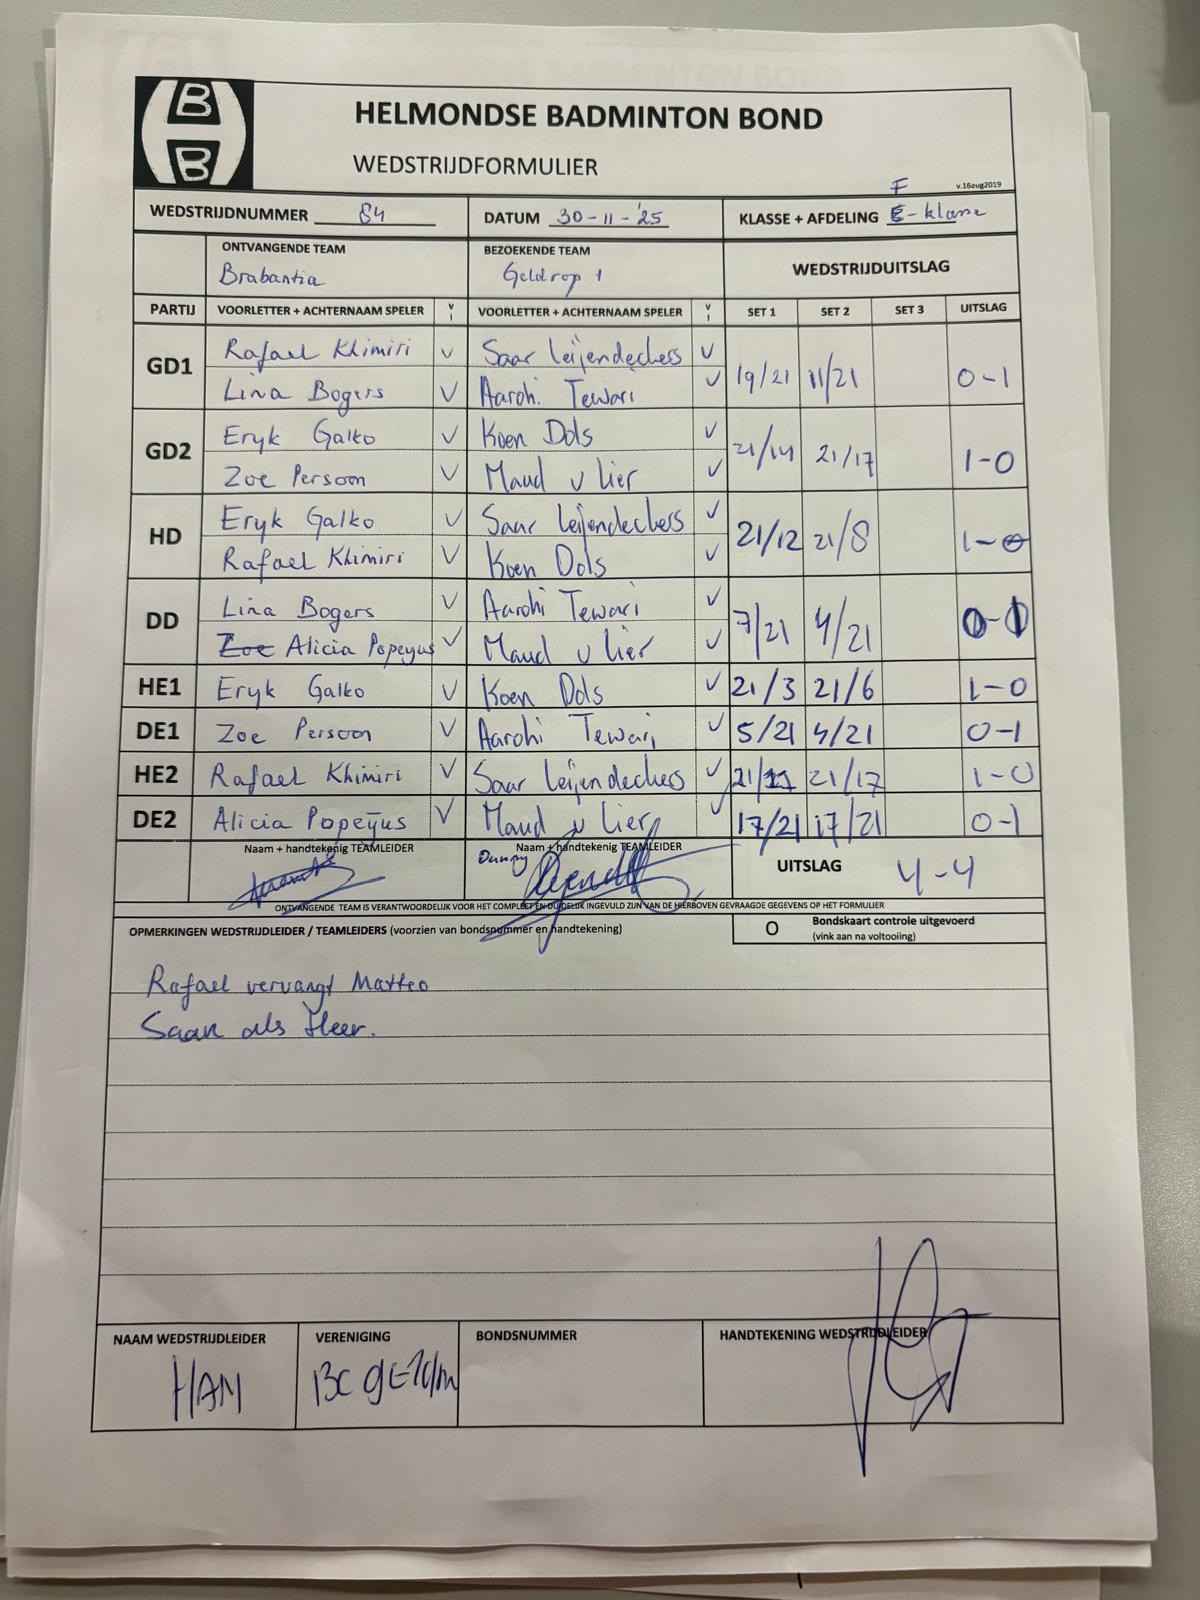 B
B
HELMONDSE BADMINTON BOND
WEDSTRIJDFORMULIER
v.16aug2019
WEDSTRIJDNUMMER 84 DATUM 30-11-'25 KLASSE + AFDELING F E-klasse
ONTVANGENDE TEAM BEZOEKENDE TEAM WEDSTRIJDUITSLAG
Brabantia Geldrop 1
PARTIJ VOORLETTER + ACHTERNAAM SPELER V I VOORLETTER + ACHTERNAAM SPELER V I SET 1 SET 2 SET 3 UITSLAG
GD1 Rafael Khimiri V Saar Leijendeckers V 19/21 11/21 0-1
Lina Bogers V Aarohi Tewari V
GD2 Eryk Galko V Koen Dols V 21/14 21/17 1-0
Zoe Persoon V Maud v Lier V
HD Eryk Galko V Saar Leijendeckers V 21/12 21/8 1-0
Rafael Khimiri V Koen Dols V
DD Lina Bogers V Aarohi Tewari V 7/21 4/21 0-1
Zoe Alicia Popeyus V Maud v Lier V
HE1 Eryk Galko V Koen Dols V 21/3 21/6 1-0
DE1 Zoe Persoon V Aarohi Tewari V 5/21 4/21 0-1
HE2 Rafael Khimiri V Saar Leijendeckers V 21/11 21/17 1-0
DE2 Alicia Popeijus V Maud v Lier V 17/21 17/21 0-1
Naam + handtekenig TEAMLEIDER Naam + handtekenig TEAMLEIDER UITSLAG 4-4
ONTVANGENDE TEAM IS VERANTWOORDELIJK VOOR HET COMPLEET EN DUIDELIJK INGEVULD ZIJN VAN DE HIERBOVEN GEVRAAGDE GEGEVENS OP HET FORMULIER
OPMERKINGEN WEDSTRIJDLEIDER / TEAMLEIDERS (voorzien van bondsnummer en handtekening) O Bondskaart controle uitgevoerd
(vink aan na voltooiing)
Rafael vervangt Matteo
Saar als Heer.
NAAM WEDSTRIJDLEIDER VERENIGING BONDSNUMMER HANDTEKENING WEDSTRIJDLEIDER
HAN BC